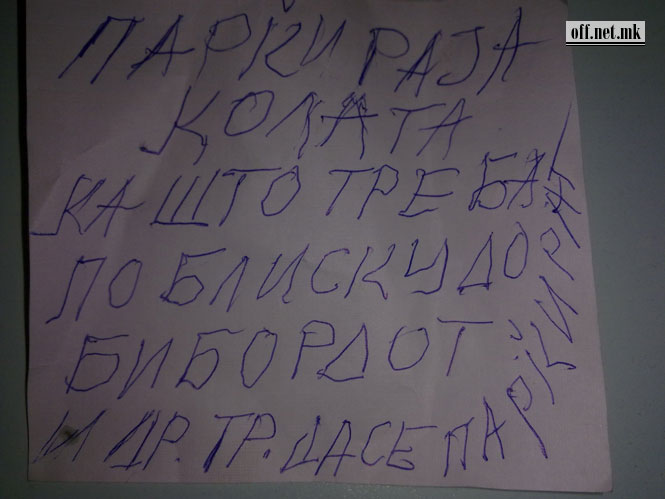 off.net.mk
ПАРКИРАЈА
КОЛАТА
КА ШТО ТРЕБА.
ПО БЛИСКУ ДО
БИБОРДОТ
И ДР. ТР. ДА СЕ ПАРКИРАТ